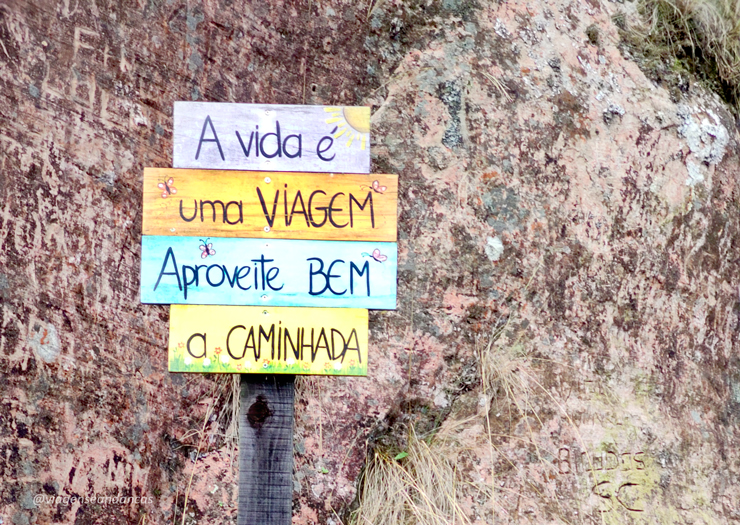 A vida é
uma VIAGEM
Aproveite BEM
a CAMINHADA
SC